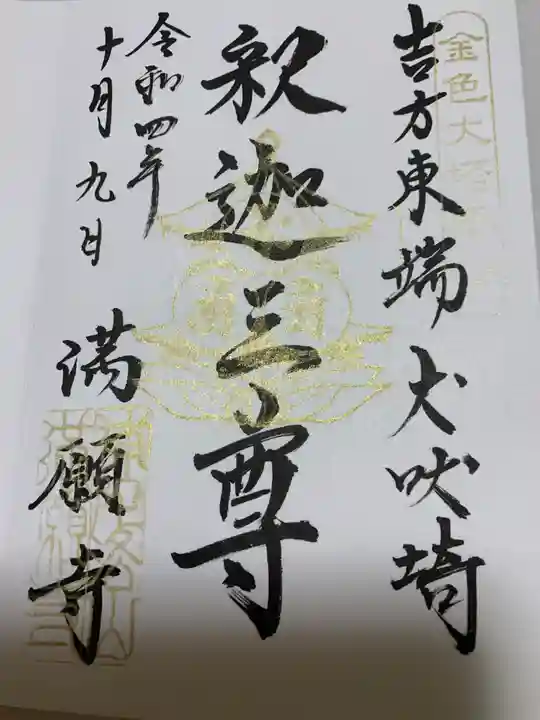 金色大塔
吉方東端犬吠埼
釈迦三尊
令和四年
十月九日
満願寺